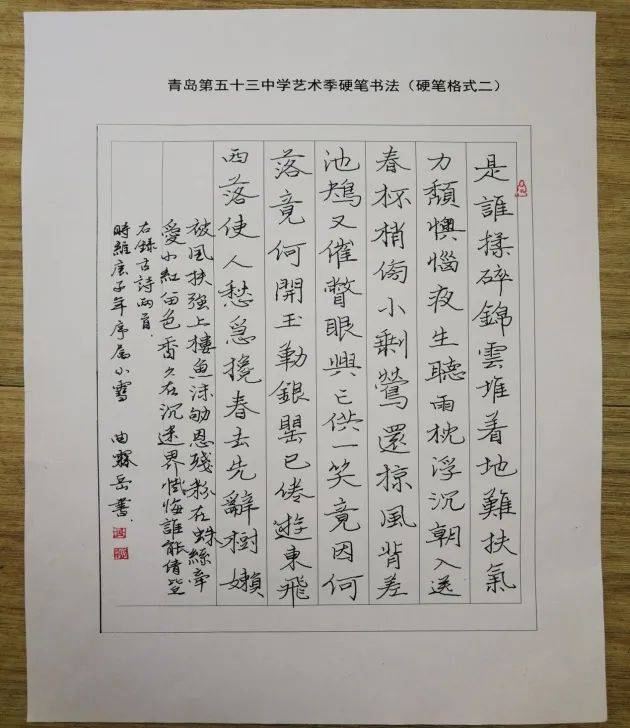 青岛第五十三中学艺术季硬笔书法（硬笔格式二）
是誰揉碎錦雲堆着地難扶氣
力頹懊惱夜生聽雨枕浮沉朝入送
春杯梢傍小剩鶯還掠風背差
池又催瞥眼興亡供一笑竟因何
落竟何開玉勒銀罌已倦遊東飛
西落使人愁急攙春去先辭樹嬾
被風扶強上樓魚沫劬恩殘粉在蛛絲牽
愛小紅留色香久在沉迷界懺悔誰能倩比丘
右錄古詩兩首
時維庚子年序属小雪 由岳書